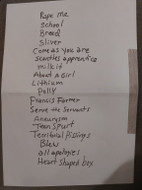 Rape me
School
Breed
Sliver
Come as you are
Scentless apprentice
milk it
About a Girl
Lithium
Polly
Francis Farmer
Serve the Servants
Aneurysm
Teen Spirit
Territorial Pissings
Blew
all apologies
Heart shaped box